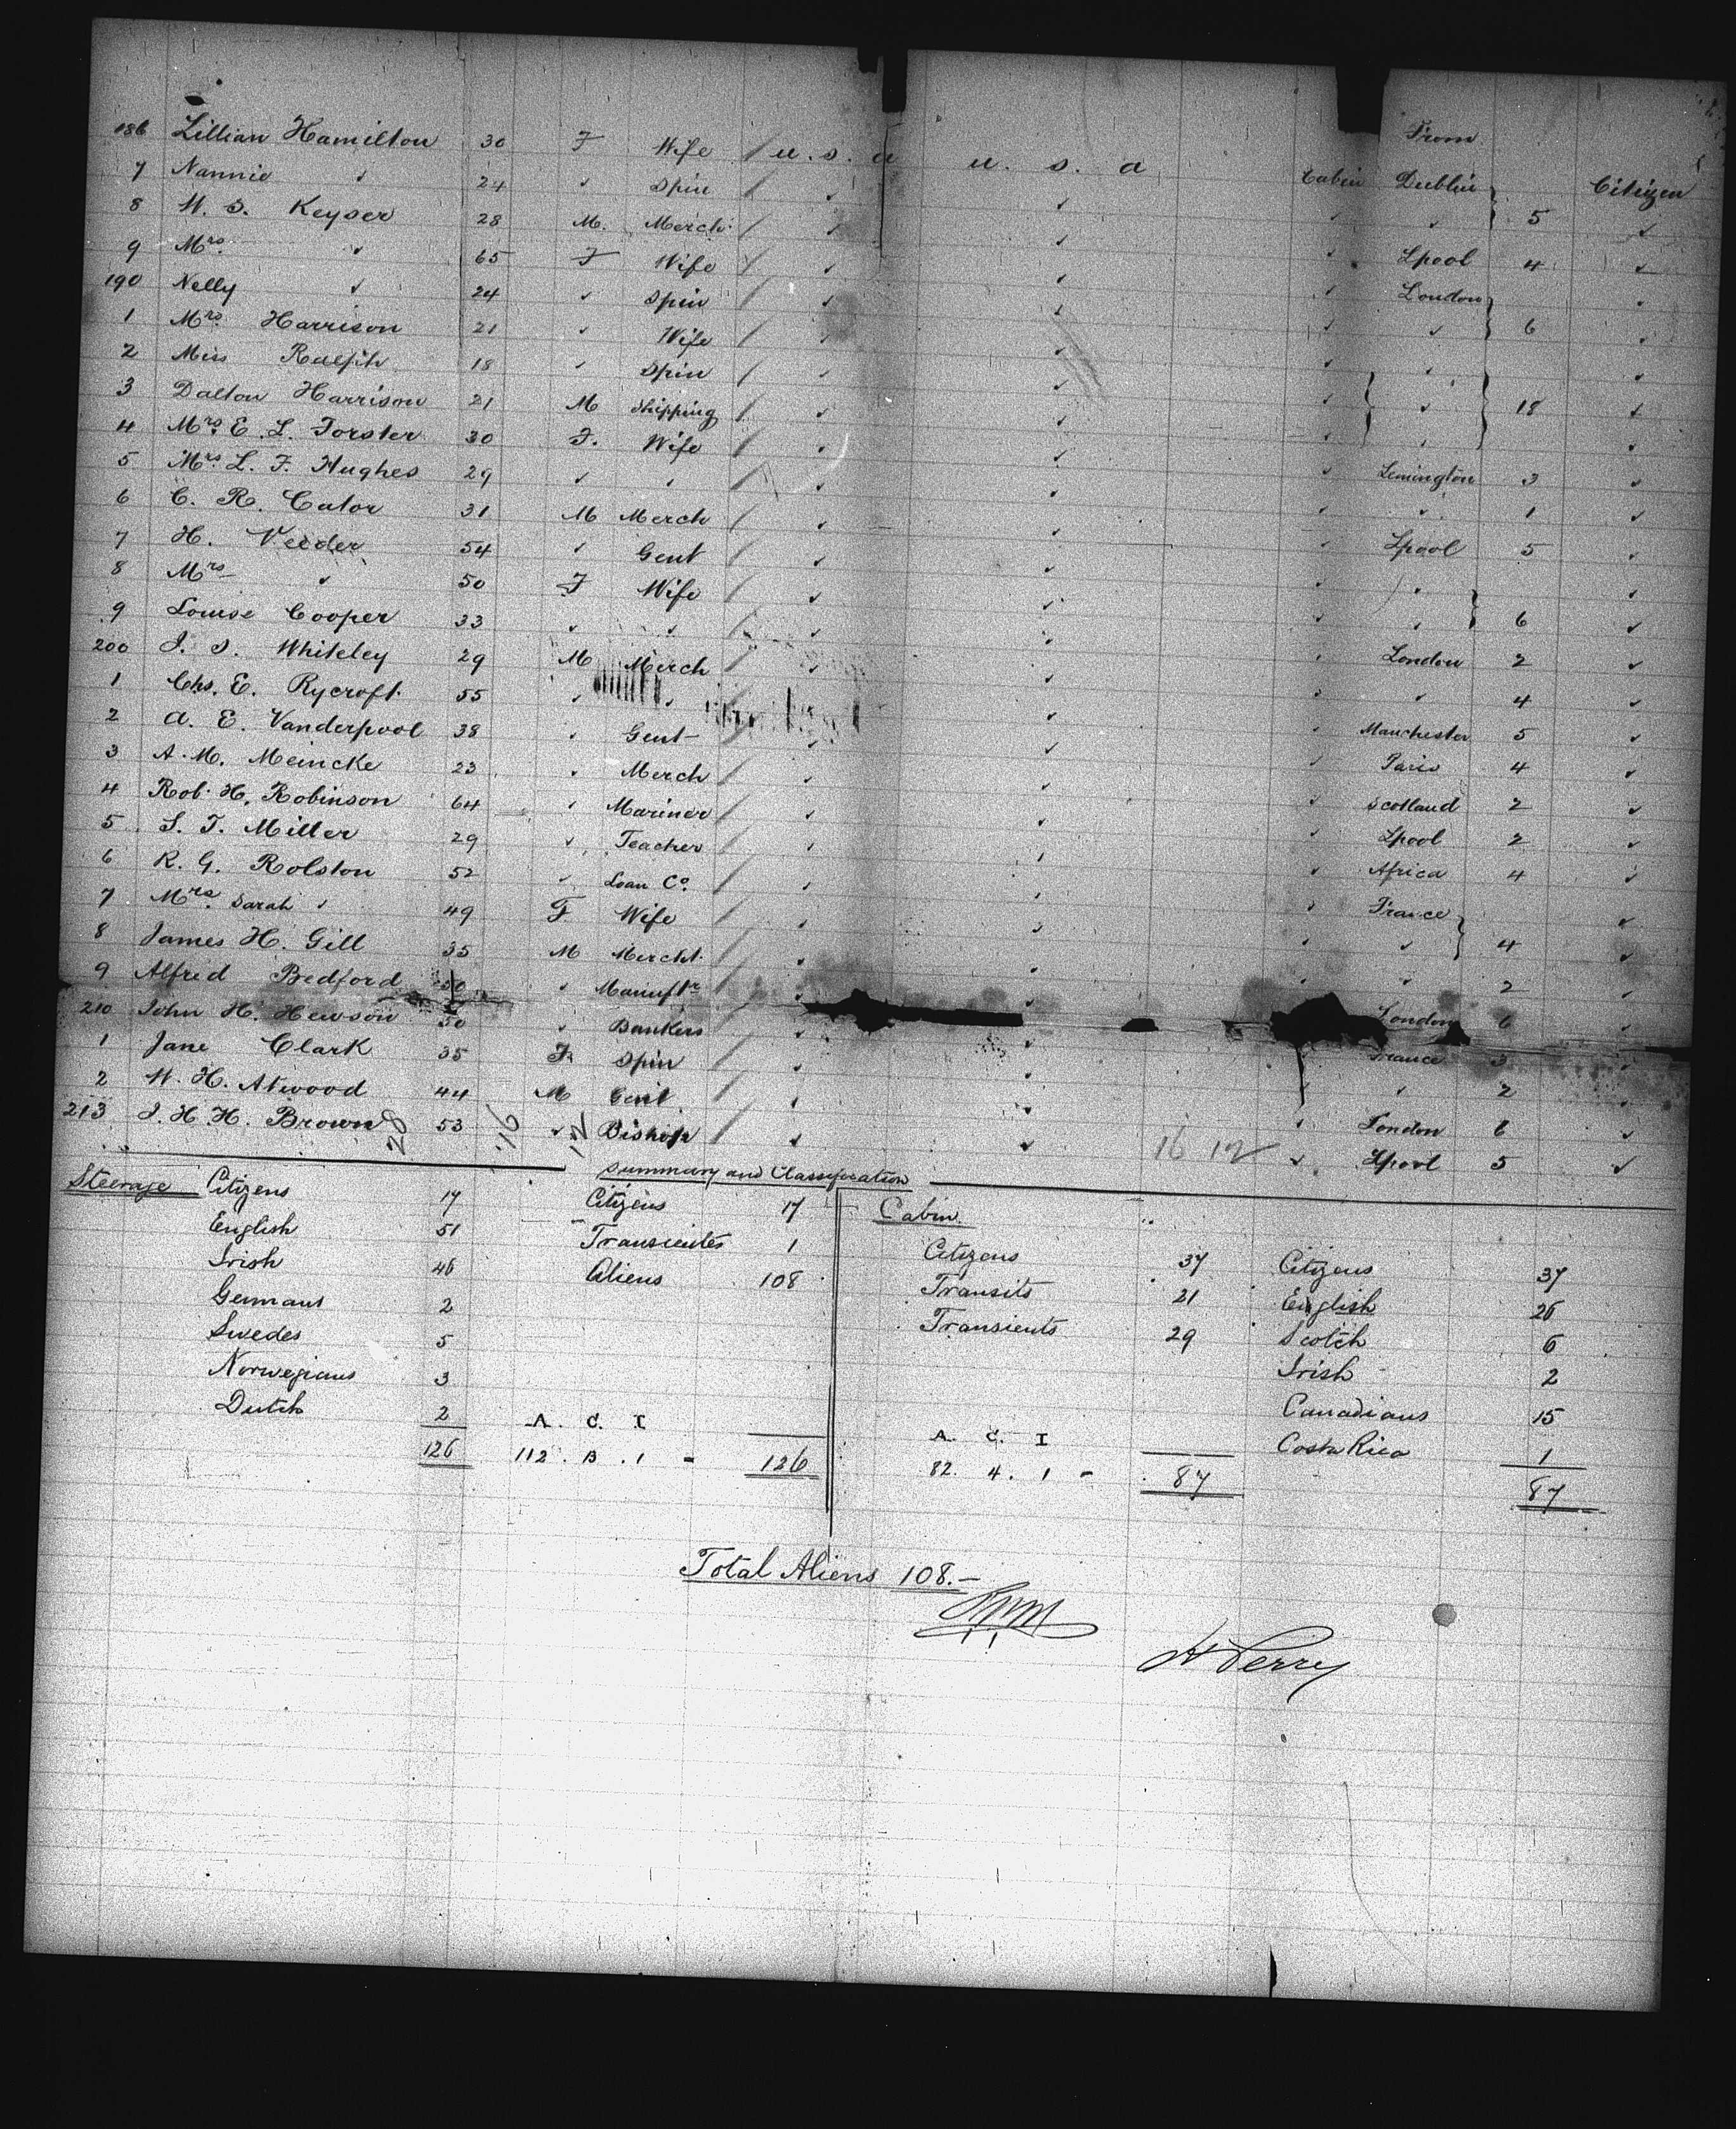 From
186 Lillian Hamilton 30 F Wife / U.S.A U.S.A Cabin Dublin Citizen
7 Nannie ✓ 24 ✓ Spin / ✓ ✓ ✓ ✓ } 5 ✓
8 W. S. Keyser 28 M. Merch. / ✓ ✓ ✓ Lpool 4 ✓
9 Mrs ✓ 65 F Wife / ✓ ✓ ✓ London ✓
190 Nelly ✓ 24 ✓ Spin / ✓ ✓ ✓ ✓ } 6 ✓
1 Mrs. Harrison 21 ✓ Wife / ✓ ✓ ✓ ✓ ✓
2 Miss Ralph 18 ✓ Spin / ✓ ✓ ✓ ✓ } 18 ✓
3 Dalton Harrison 21 M Shipping / ✓ ✓ ✓ ✓ ✓
4 Mrs. E. L. Forster 30 F. Wife / ✓ ✓ ✓ Lemington 3 ✓
5 Mrs. L. F. Hughes 29 ✓ ✓ / ✓ ✓ ✓ ✓ 1 ✓
6 C. R. Cator 31 M Merch / ✓ ✓ ✓ Lpool 5 ✓
7 H. Veeder 54 ✓ Gent / ✓ ✓ ✓ ✓ ✓
8 Mrs ✓ 50 F Wife / ✓ ✓ ✓ ✓ } 6 ✓
9 Louise Cooper 33 ✓ ✓ / ✓ ✓ ✓ London 2 ✓
200 J. S. Whiteley 29 M Merch / ✓ ✓ ✓ ✓ 4 ✓
1 Chs. E. Rycroft 55 ✓ ✓ / ✓ ✓ ✓ Manchester 5 ✓
2 A. E. Vanderpool 38 ✓ Gent / ✓ ✓ ✓ Paris 4 ✓
3 A. M. Meincke 23 ✓ Merch / ✓ ✓ ✓ Scotland 2 ✓
4 Rob. H. Robinson 64 ✓ Mariner / ✓ ✓ ✓ Lpool 2 ✓
5 S. T. Miller 29 ✓ Teacher / ✓ ✓ ✓ Africa 4 ✓
6 R. G. Rolston 52 ✓ Loan Co. / ✓ ✓ ✓ France ✓
7 Mrs. Sarah ✓ 49 F Wife / ✓ ✓ ✓ ✓ } 4 ✓
8 James H. Gill 35 M Mercht. / ✓ ✓ ✓ ✓ 2 ✓
9 Alfred Bedford 50 ✓ Manuftr / ✓ ✓ London 6 ✓
210 John H. Hewson 50 ✓ Bankers / ✓ ✓ France 3 ✓
1 Jane Clark 35 F. Spin / ✓ ✓ ✓ 2 ✓
2 W. H. Atwood 44 M Gent / ✓ ✓ ✓ London 6 ✓
213 J. H. H. Brown 53 ✓ Bishop / ✓ ✓ ✓ Lpool 5 ✓
28 16 12 16 12
Summary and Classification
Steerage Citizens 17 Citizens 17 Cabin
English 51 Transientes 1 Citizens 37 Citizens 37
Irish 46 Aliens 108 Transits 21 English 26
Germans 2 Transients 29 Scotch 6
Swedes 5 Irish 2
Norwegians 3 Canadians 15
Dutch 2 A. C. I A. C. I Costa Rica 1
126 112. 13. 1 - 126 82. 4. 1 - 87 87
Total Aliens 108.-
H Perry